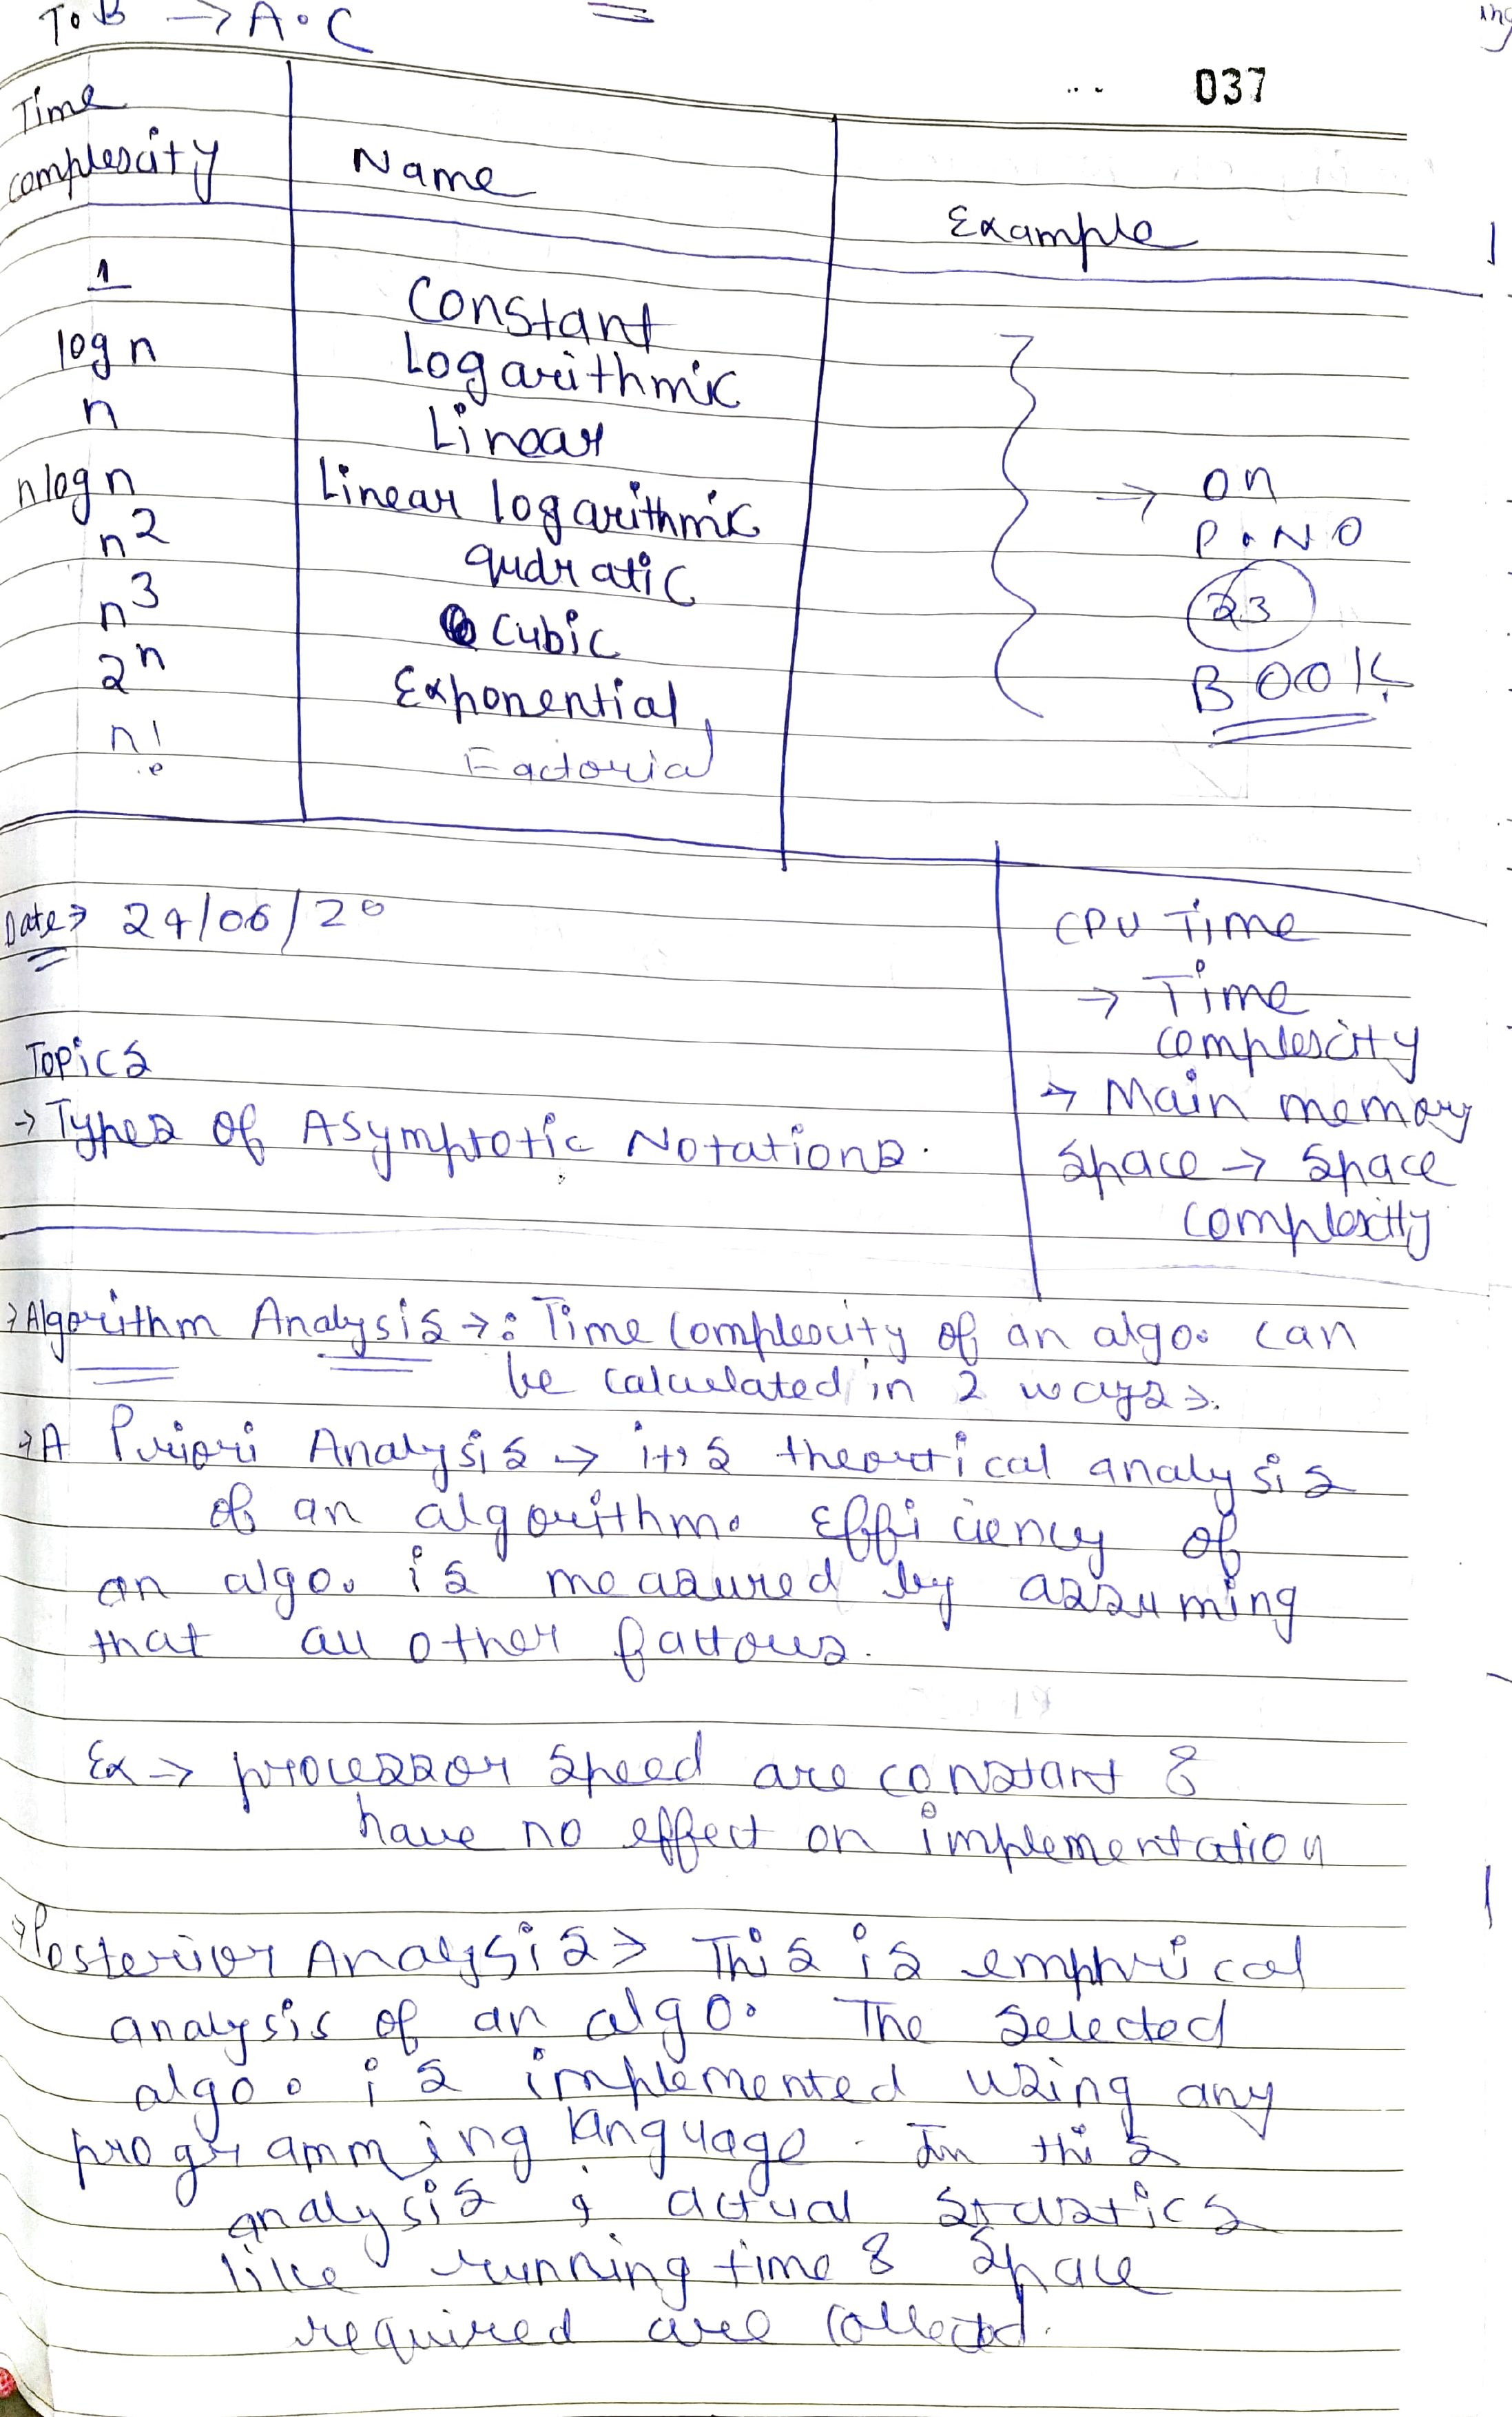 T.B → A.C
ing
037
Time complexity | Name | Example
1 | Constant
log n | Logarithmic
n | Linear
nlogn | Linear logarithmic
n2 | qudratic
n3 | Cubic
2n | Exponential
n! | Factorial
→ on
P.NO
23
BOOK
Date→ 24/06/20
CPU Time
→ Time
complexity
→ Main memory
Space → Space
complexitty
Topics
→ Types of Asymptotic Notations.
→ Algorithm Analysis →: Time complexity of an algo. can
be calculated in 2 ways →.
→ A Priori Analysis → it's theortical analysis
of an algorithm. Efficiency of
an algo. is measured by assuming
that all other fattors.
Ex → processor speed are constant &
have no effect on implementation
→ Posterior Analysis → This is emphrical
analysis of an algo. The selected
algo. is implemented using any
programming language. In this
analysis, actual stastics
like running time & space
required are collected.